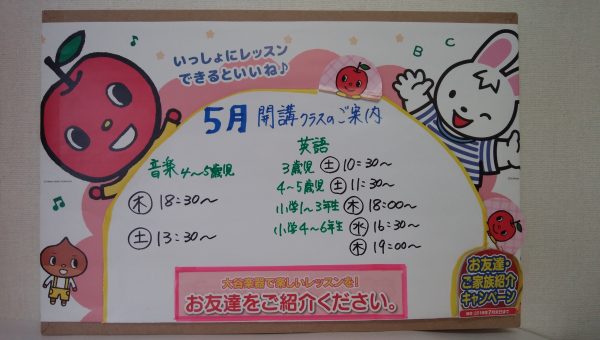 いっしょにレッスン
できるといいね♪
B C
5月 開講クラスのご案内
音楽 4～5歳児
㊍ 18:30～
㊏ 13:30～
英語
3歳児 ㊏ 10:30～
4～5歳児 ㊏ 11:30～
小学1～3年生 ㊍ 18:00～
小学4～6年生 ㊌ 16:30～
㊍ 19:00～
大谷楽器で楽しいレッスンを!
お友達をご紹介ください。
お友達・
ご家族紹介
キャンペーン